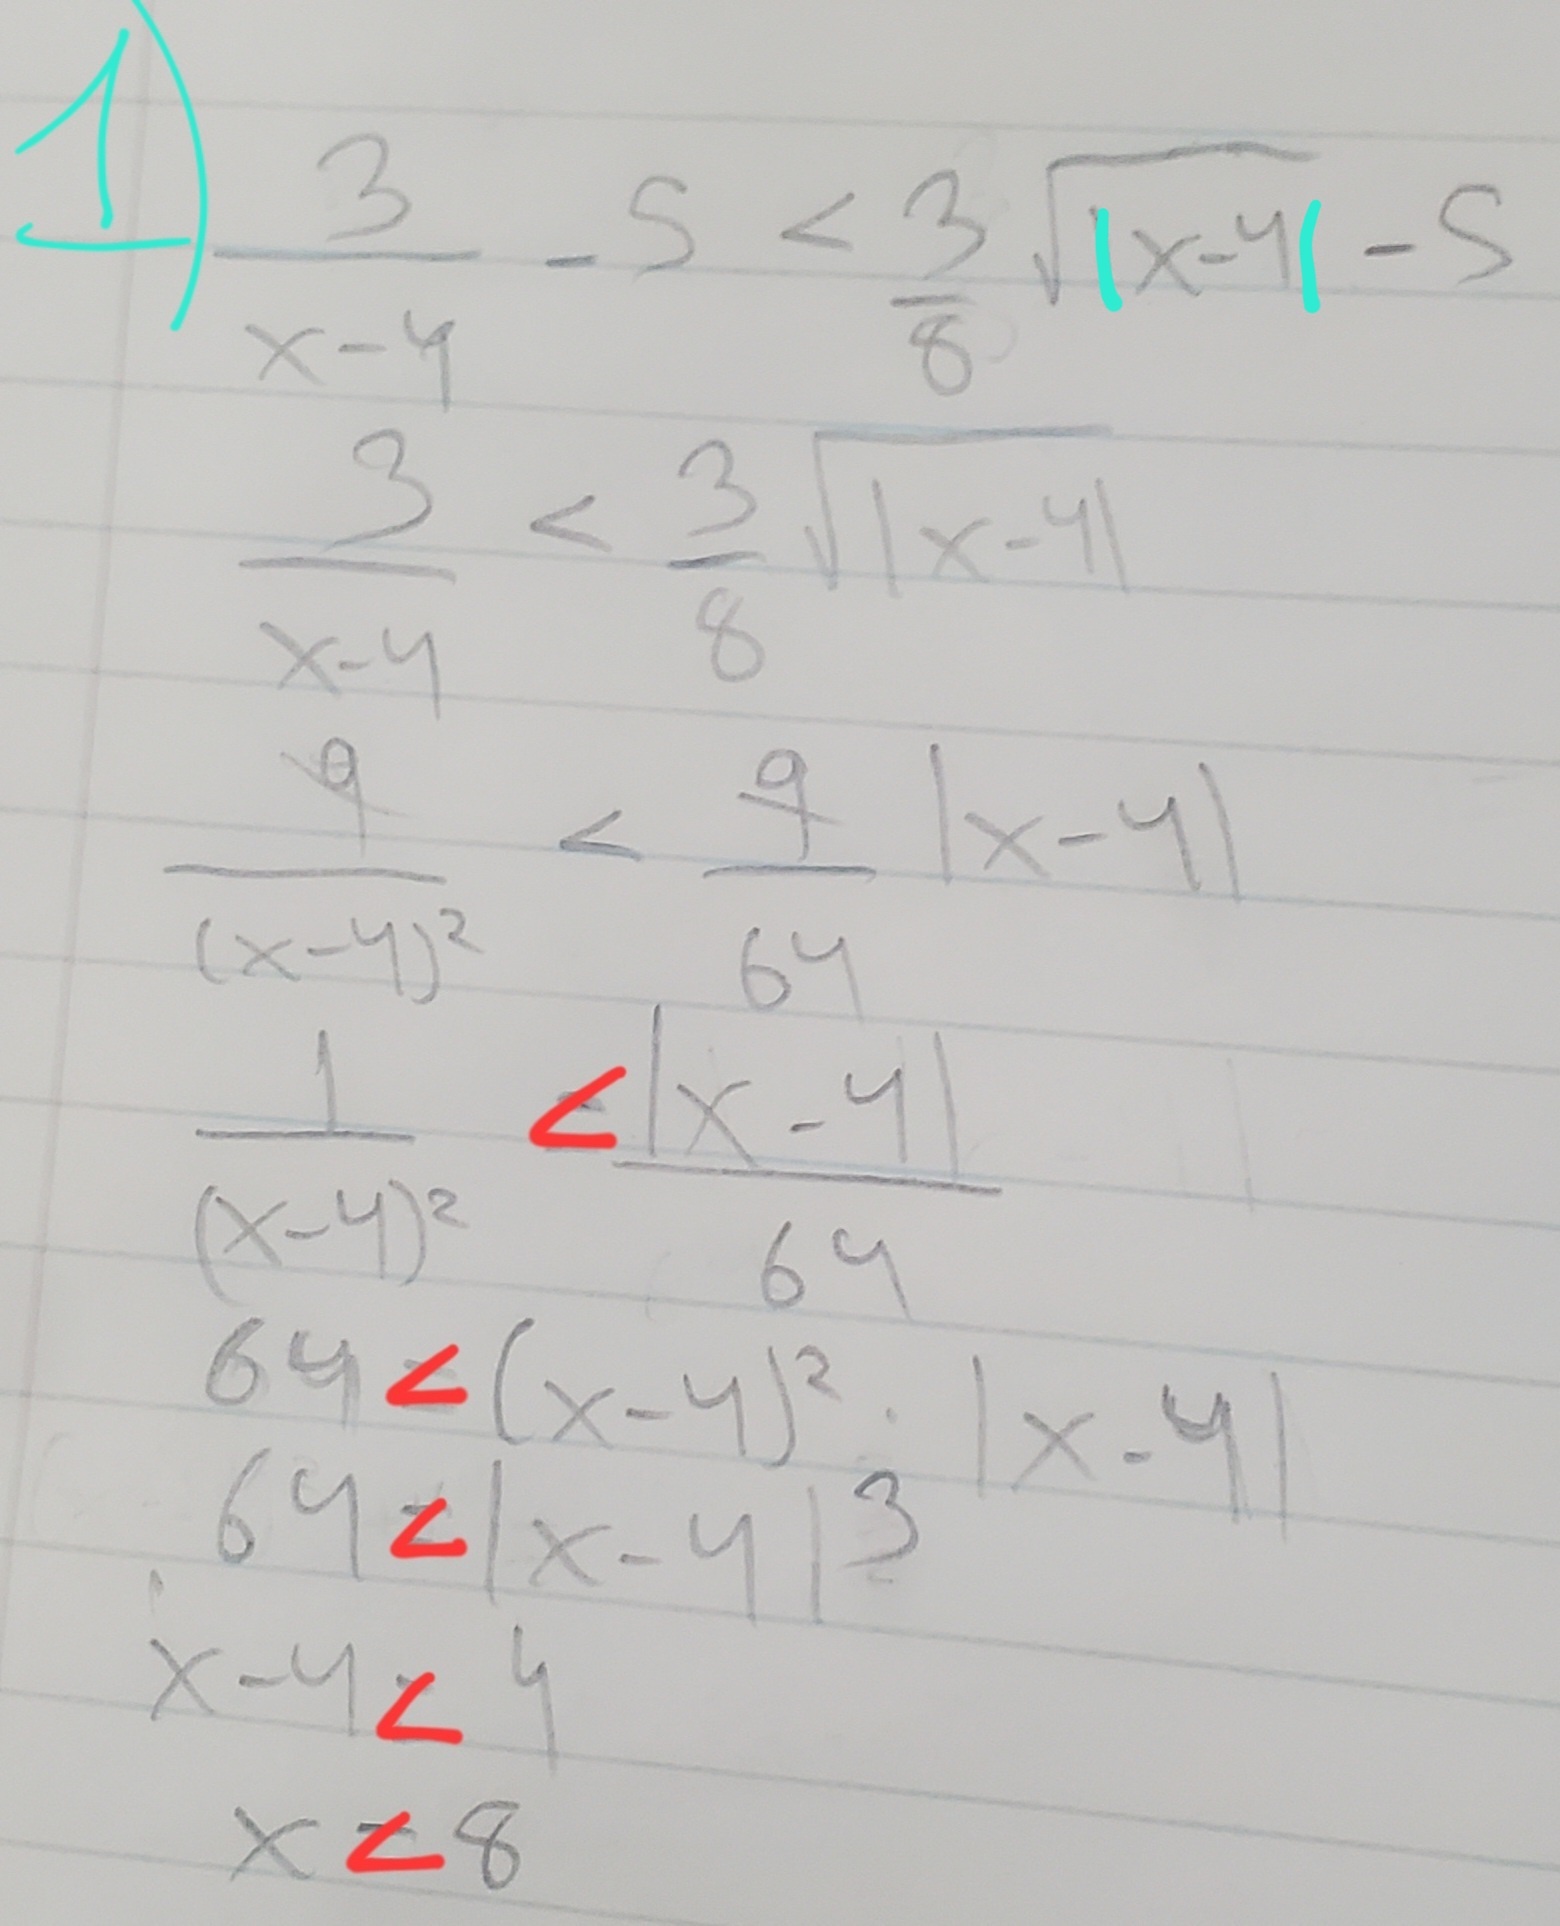 1) 3/(x-4) - 5 < 3/8 √|x-4| - 5
3/(x-4) < 3/8 √|x-4|
9/(x-4)² < 9/64 |x-4|
1/(x-4)² < |x-4|/64
64 < (x-4)² · |x-4|
64 < |x-4|³
x-4 < 4
x < 8